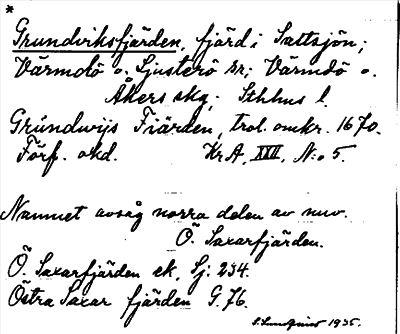 *
Grundviksfjärden, fjärd i Saltsjön;
Värmdö o. Ljusterö sr; Värmdö o.
Åkers skg; Sthlms l.
Grúndwijs Fiärden, trol. omkr. 1670.
Förf. okd. Kr A, XXII, N:o 5.
Namnet avsåg norra delen av nuv.
Ö. Saxarfjärden.
Ö. Saxarfjärden ek, Sj. 234.
Östra Saxar fjärden G. 76.
1935.